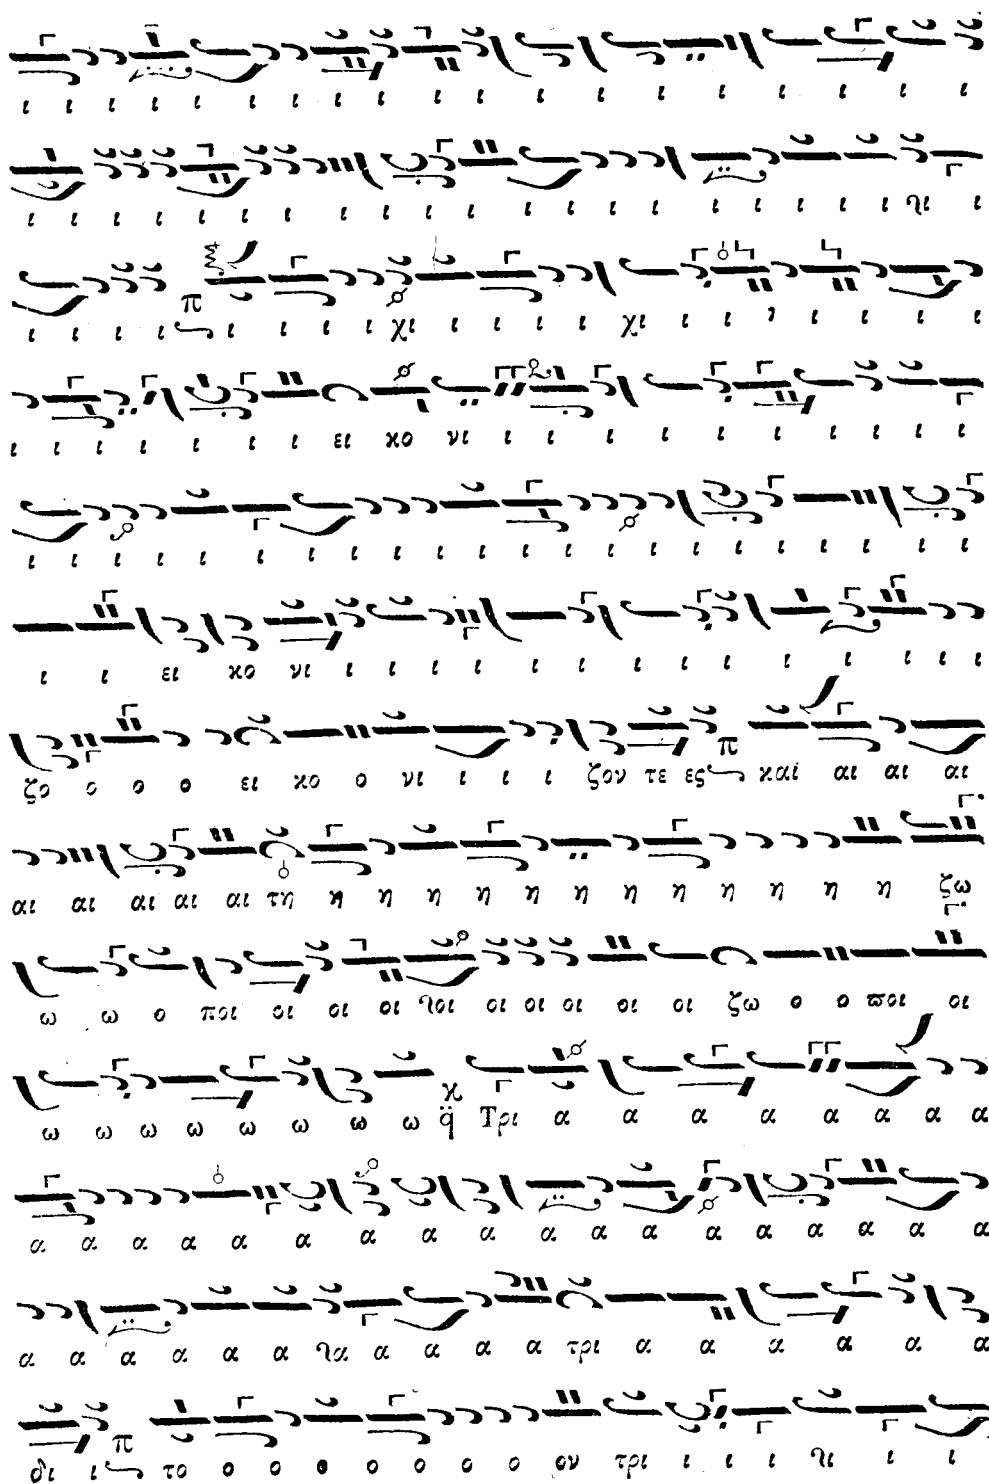 ι ι ι ι ι ι ι ι ι ι ι ι ι ι ι ι ι ι ι
ι ι ι ι ι ι ι ι ι ι ι ι ι ι ι ι ι ι ι ι ι ι
ι ι ι ι π ι ι ι ι χι ι ι ι ι χι ι ι ι ι ι ι ι
ι ι ι ι ι ι ι ι ει κο νι ι ι ι ι ι ι ι ι ι ι ι
ι ι ι ι ι ι ι ι ι ι ι ι ι ι ι ι ι ι ι ι ι ι
ι ι ει κο νι ι ι ι ι ι ι ι ι ι ι ι ι ι ι
ζο ο ο ο ει κο ο νι ι ι ι ζον τε ες π και αι αι αι
αι αι αι αι αι τη η η η η η η η η η η η ζω
ω ω ο ποι οι οι οι οι οι οι οι οι ζω ο ο ποι οι
ω ω ω ω ω ω ω ω κ q̈ Τρι α α α α α α α α
α α α α α α α α α α α α α α α α α α
α α α α α α α α α α α τρι α α α α α α
δι ι π το ο ο ο ο ο ο ο ον τρι ι ι ι ι ι